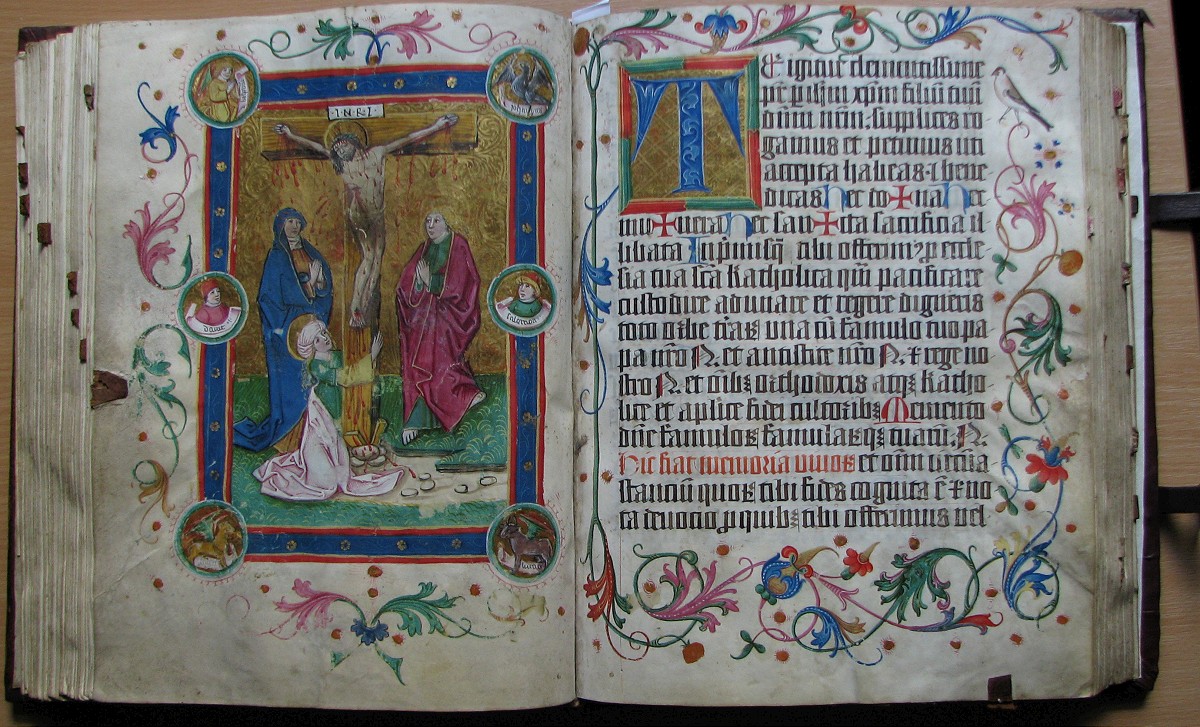 ·I·N·R·I·
dauid
salomon
lucas
Te igitur clementissime
pr̄ p̄ ih̄m xp̄m filiū tuū
dn̄m nr̄m supplices ro
gamus et petimus uti
accepta habeas · et bene
dicas hec do✠na hec
mu✠nera hec san✠cta sacrificia il
libata Inprimisqꝫ tibi offerimꝰ ꝓ eccle
sia tua sc̄a Katholica quā pacificare
custodire adunare et regere digneris
toto orbe t̄raꝝ una cū famulo tuo pa
pa nr̄o N. et antistite nr̄o N. et rege no
stro N. et oībꝫ orthodoxis atqꝫ katho
lice et aplice fidei cultoribꝫ Memento
dn̄e famuloꝝ famulaꝝqꝫ tuaꝝ N.
Hic fiat memoria viuoꝝ et oīm circūa
stanciū quoꝝ tibi fides cognita ē et no
ta deuocio ꝓ quibꝫ tibi offerimus vel